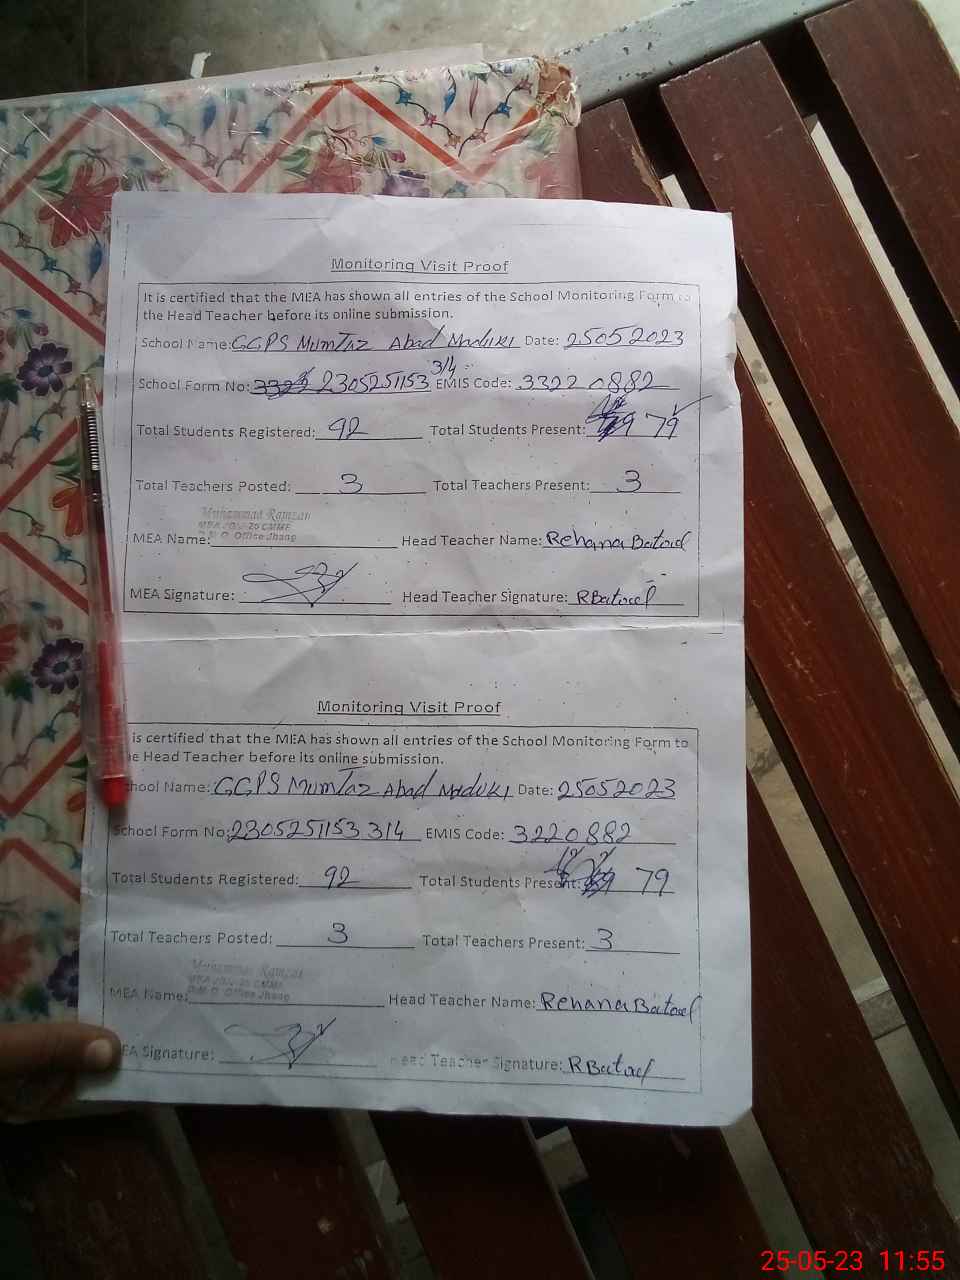 Monitoring Visit Proof
It is certified that the MEA has shown all entries of the School Monitoring Form to
the Head Teacher before its online submission.
School Name: GGPS Mumtaz Abad Maduki Date: 25052023
School Form No: 2305251153 314 EMIS Code: 33220882
Total Students Registered: 92 Total Students Present: 79
Total Teachers Posted: 3 Total Teachers Present: 3
Muhammad Ramzan
D.M.O. Office Jhang
MEA Name: Head Teacher Name: Rehana Batool
MEA Signature: Head Teacher Signature: RBatool
Monitoring Visit Proof
is certified that the MEA has shown all entries of the School Monitoring Form to
Head Teacher before its online submission.
School Name: GGPS Mumtaz Abad Maduki Date: 25052023
School Form No: 2305251153 314 EMIS Code: 3220882
Total Students Registered: 92 Total Students Present: 79
Total Teachers Posted: 3 Total Teachers Present: 3
Muhammad Ramzan
D.M.O. Office Jhang
MEA Name: Head Teacher Name: Rehana Batool
MEA Signature: Head Teacher Signature: RBatool
25-05-23 11:55